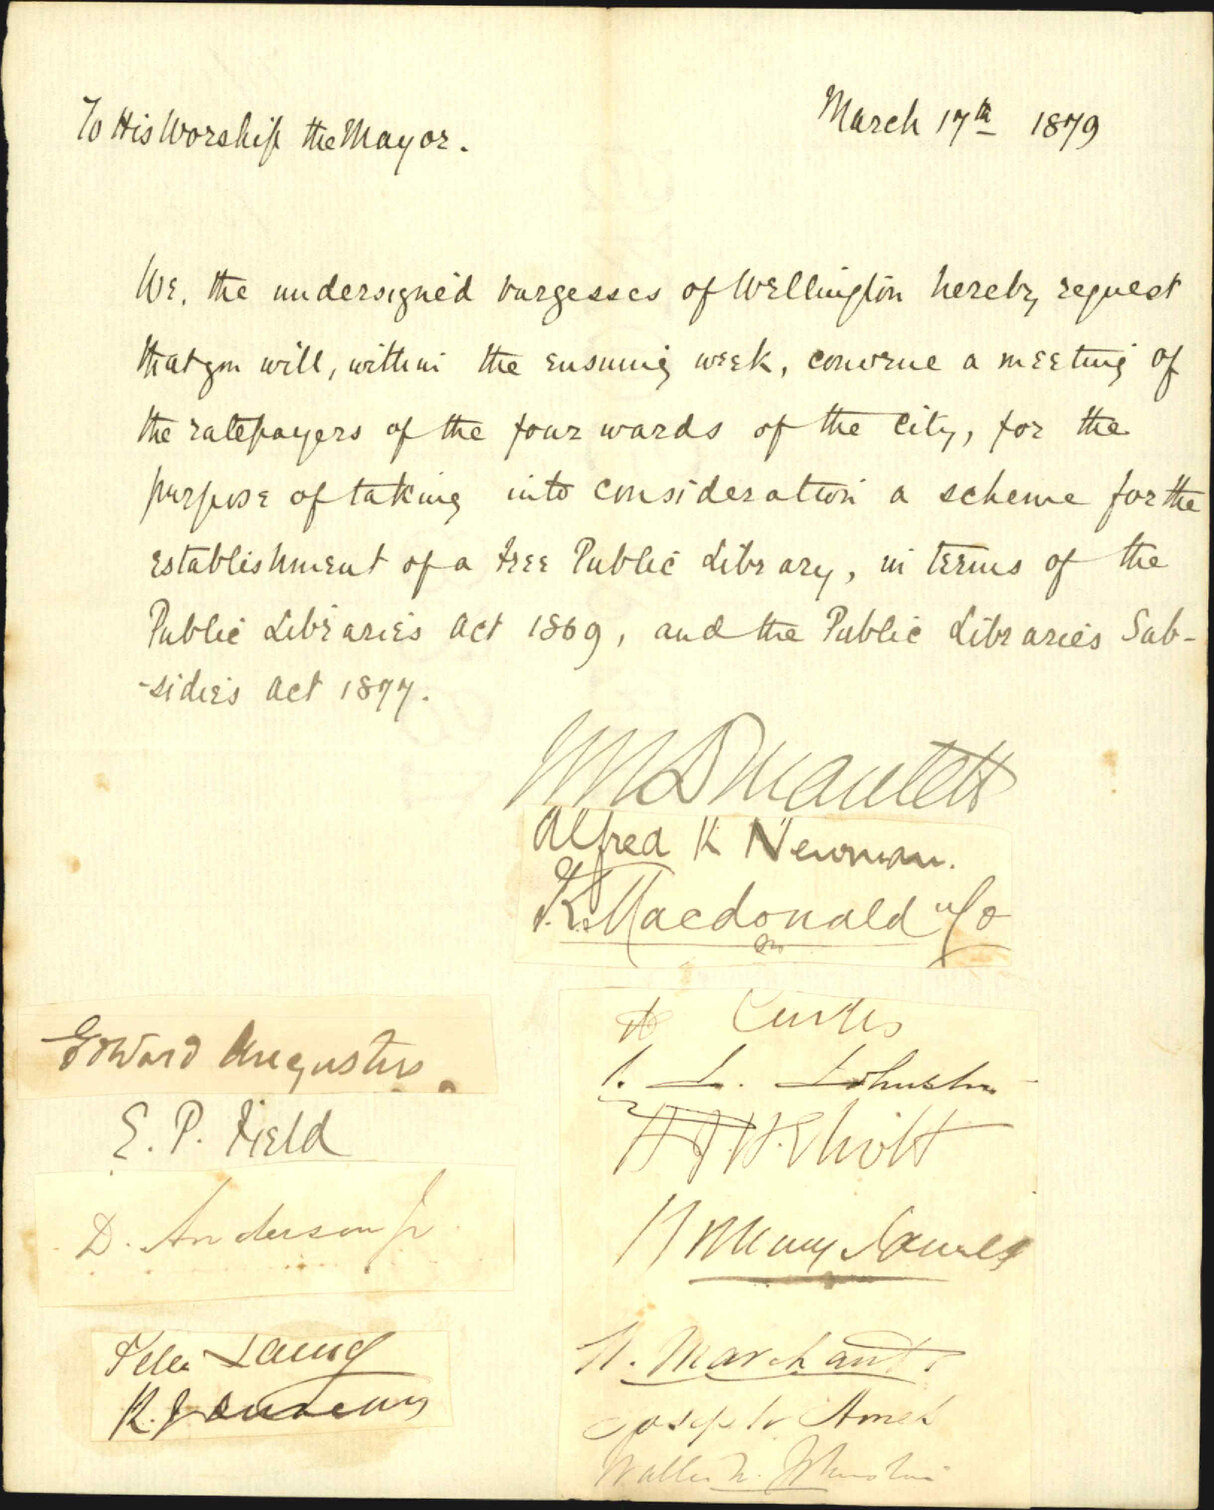 To His Worship the Mayor.
March 17th 1879
We, the undersigned burgesses of Wellington hereby request
that you will, within the ensuing week, convene a meeting of
the ratepayers of the four wards of the City, for the
purpose of taking into consideration a scheme for the
establishment of a Free Public Library, in terms of the
Public Libraries Act 1869, and the Public Libraries Sub-
-sidies Act 1877.
Alfred K Newman.
T. K. Macdonald & Co
Curtis
Johnston
Edward Augustus
E. P. Field
D. Anderson Jr
Peter Laing
R. J. Duncan
James
Marchant
Joseph
Walter Johnston